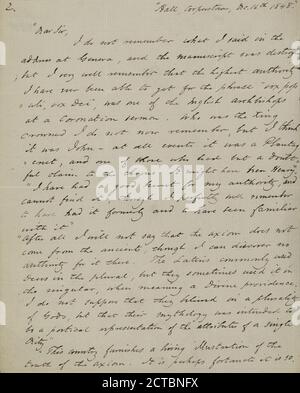 2.
"Hall Cooperstown, Dec. 16th 1848"
"Dear Sir,
I do not remember what I said in the
address at Geneva, and the manuscript was destroyed
but I very well remember that the highest authority
I have ever been able to get for the phrase "vox pop
uli, vox Dei", was one of the English archbishops
at a Coronation sermon. Who was the King
crowned I do not now remember, but I think
it was John - at all events it was a Plantag
enet, and one of those who had but a doubt-
ful claim to the throne. It might have been Henry
"I have had a good hunt for my authority, and
cannot find it, though I perfectly well remember
to have had it formerly and to have been familiar
with it"
After all I will not say that the axiom does not
come from the ancients though I can discover no
authority for it there. The Latins commonly used
Deus in the plural, but they sometimes used it in
the singular, when meaning a Divine providence.
I do not suppose that they believed in a plurality
of Gods, but that their mythology was intended to
be a poetical representation of the attributes of a single
Deity"
"This country furnishes a living illustration of the
truth of the axiom. It is perhaps fortunate it is so,
alamy
Image ID: 2CTBNFX
www.alamy.com